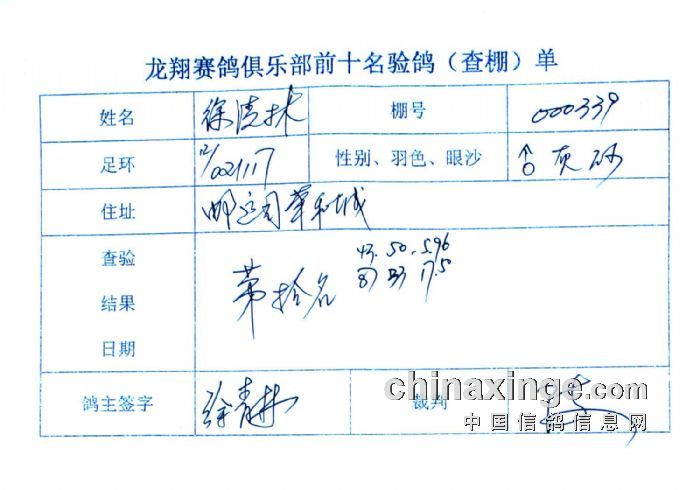 龙翔赛鸽俱乐部前十名验鸽（查棚）单
姓名 徐清林 棚号 000339
足环 12/021117 性别、羽色、眼沙 ♂ 灰 砂
住址
查验
结果
日期
第拾名
43. 50. 5.96
87 33 17.5
鸽主签字 徐清林 裁判
chinaxinge.com
中国信鸽信息网